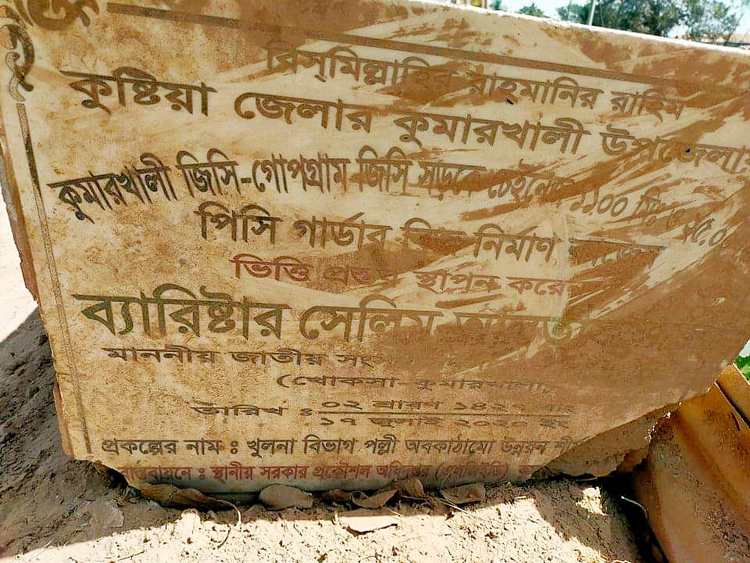 বিস্‌মিল্লাহির রাহমানির রাহিম
কুষ্টিয়া জেলার কুমারখালী উপজেলার
কুমারখালী জিসি-গোপগ্রাম জিসি সড়কে চেইনেজ ১১০০ মিঃ
পিসি গার্ডার ব্রিজ নির্মাণ
ভিত্তি প্রস্তর স্থাপন করেন
ব্যারিষ্টার সেলিম
মাননীয় জাতীয়
(খোকসা-কুমারখালী
তারিখ : ০২ শ্রাবণ
১৭ জুলাই ২০২০ ইং
প্রকল্পের নাম : খুলনা বিভাগ পল্লী অবকাঠামো উন্নয়ন
বাস্তবায়নে : স্থানীয় সরকার প্রকৌশল অধিদপ্তর (এলজিইডি)